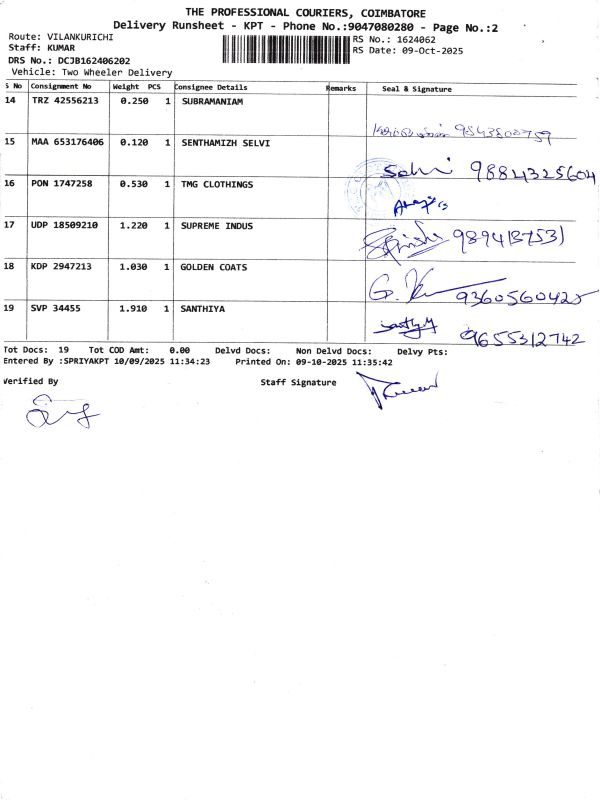 THE PROFESSIONAL COURIERS, COIMBATORE
Delivery Runsheet - KPT - Phone No.:9047080280 - Page No.:2
Route: VILANKURICHI
RS No.: 1624062
Staff: KUMAR
RS Date: 09-Oct-2025
DRS No.: DCJB162406202
Vehicle: Two Wheeler Delivery
S No Consignment No Weight PCS Consignee Details Remarks Seal & Signature
14 TRZ 42556213 0.250 1 SUBRAMANIAM
15 MAA 653176406 0.120 1 SENTHAMIZH SELVI
9884325604
16 PON 1747258 0.530 1 TMG CLOTHINGS
17 UDP 18509210 1.220 1 SUPREME INDUS
18 KDP 2947213 1.030 1 GOLDEN COATS
9360560425
19 SVP 34455 1.910 1 SANTHIYA
9655312742
Tot Docs: 19 Tot COD Amt: 0.00 Delvd Docs: Non Delvd Docs: Delvy Pts:
Entered By :SPRIYAKPT 10/09/2025 11:34:23 Printed On: 09-10-2025 11:35:42
Verified By Staff Signature